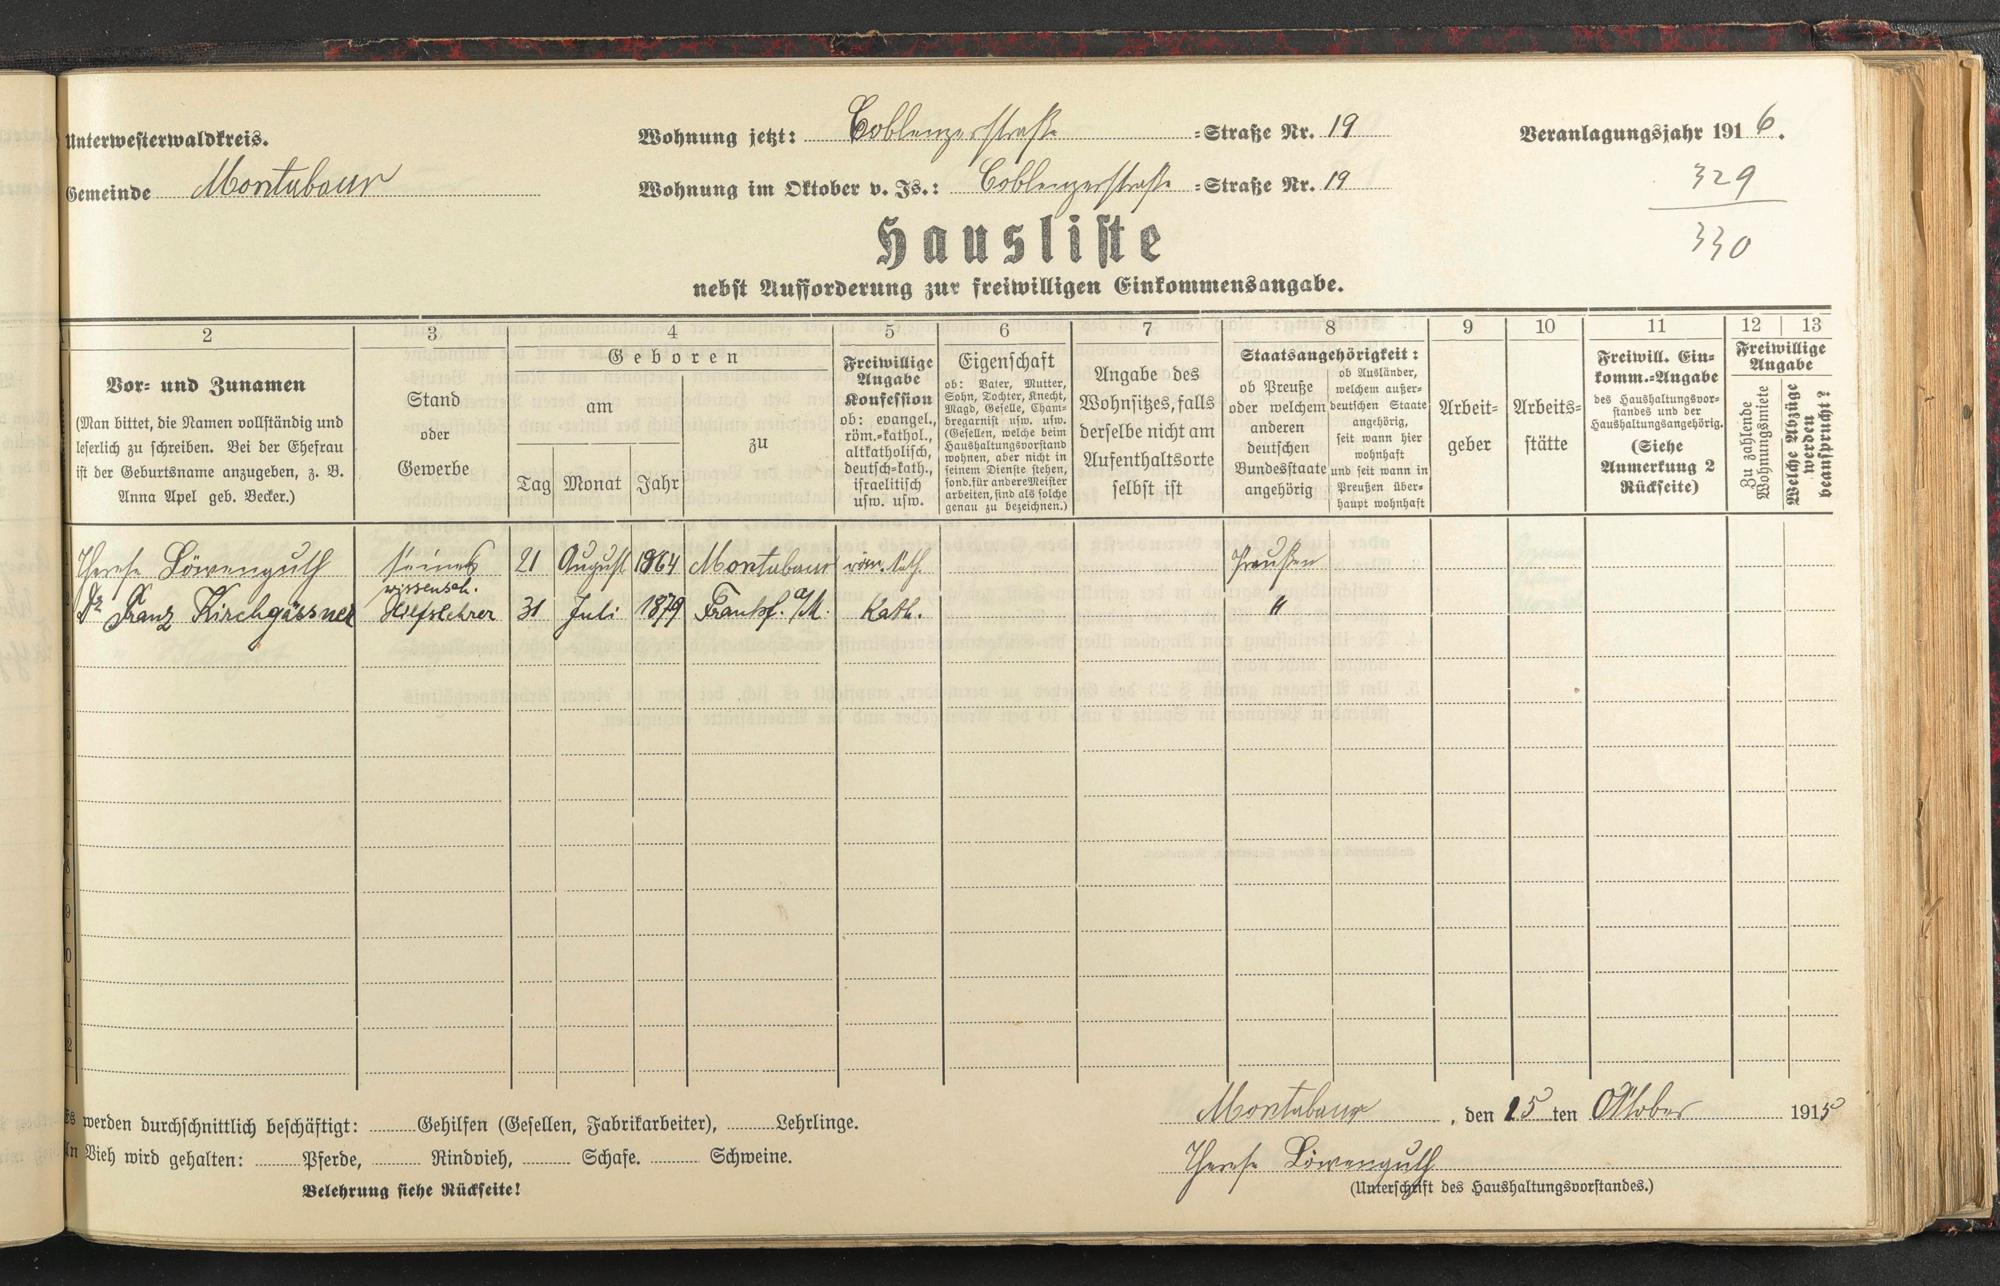 Unterwesterwaldkreis.
Gemeinde Montabaur
Wohnung jetzt: Coblenzerstraße =Straße Nr. 19
Wohnung im Oktober v. Js.: Coblenzerstraße =Straße Nr. 19
Veranlagungsjahr 1916.
329
330
Hausliste
nebst Aufforderung zur freiwilligen Einkommensangabe.
2 3 4 5 6 7 8 9 10 11 12 13
Vor- und Zunamen
(Man bittet, die Namen vollständig und
leserlich zu schreiben. Bei der Ehefrau
ist der Geburtsname anzugeben, z. B.
Anna Apel geb. Becker.)
Stand
oder
Gewerbe
Geboren
am
Tag Monat Jahr
zu
Freiwillige
Angabe
Konfession
ob: evangel.,
röm.=kathol.,
altkatholisch,
deutsch=kath.,
israelitisch
usw. usw.
Eigenschaft
ob: Vater, Mutter,
Sohn, Tochter, Knecht,
Magd, Geselle, Cham-
bregarnist usw. usw.
(Gesellen, welche beim
Haushaltungsvorstand
wohnen, aber nicht in
seinem Dienste stehen,
sond. für andere Meister
arbeiten, sind als solche
genau zu bezeichnen.)
Angabe des
Wohnsitzes, falls
derselbe nicht am
Aufenthaltsorte
selbst ist
Staatsangehörigkeit:
ob Preuße
oder welchem
anderen
deutschen
Bundesstaate
angehörig
ob Ausländer,
welchem außer-
deutschen Staate
angehörig,
seit wann hier
wohnhaft
und seit wann in
Preußen über-
haupt wohnhaft
Arbeit-
geber
Arbeits-
stätte
Freiwill. Ein-
komm.=Angabe
des Haushaltungsvor-
standes und der
Haushaltungsangehörig.
(Siehe
Anmerkung 2
Rückseite)
Freiwillige
Angabe
Zu zahlende
Wohnungsmiete
Welche Abzüge
werden
beansprucht?
Therese Löwenguth 21 August 1864 Montabaur röm. Kath. Preußen
wissensch.
Dr Franz Kirchgässner Hilfslehrer 31 Juli 1879 Frankf. a/M. Kath. "
4
5
7
8
9
10
11
12
Es werden durchschnittlich beschäftigt: Gehilfen (Gesellen, Fabrikarbeiter), Lehrlinge.
An Vieh wird gehalten: Pferde, Rindvieh, Schafe. Schweine.
Belehrung siehe Rückseite!
Montabaur, den 15 ten Oktober 1915
Therese Löwenguth
(Unterschrift des Haushaltungsvorstandes.)